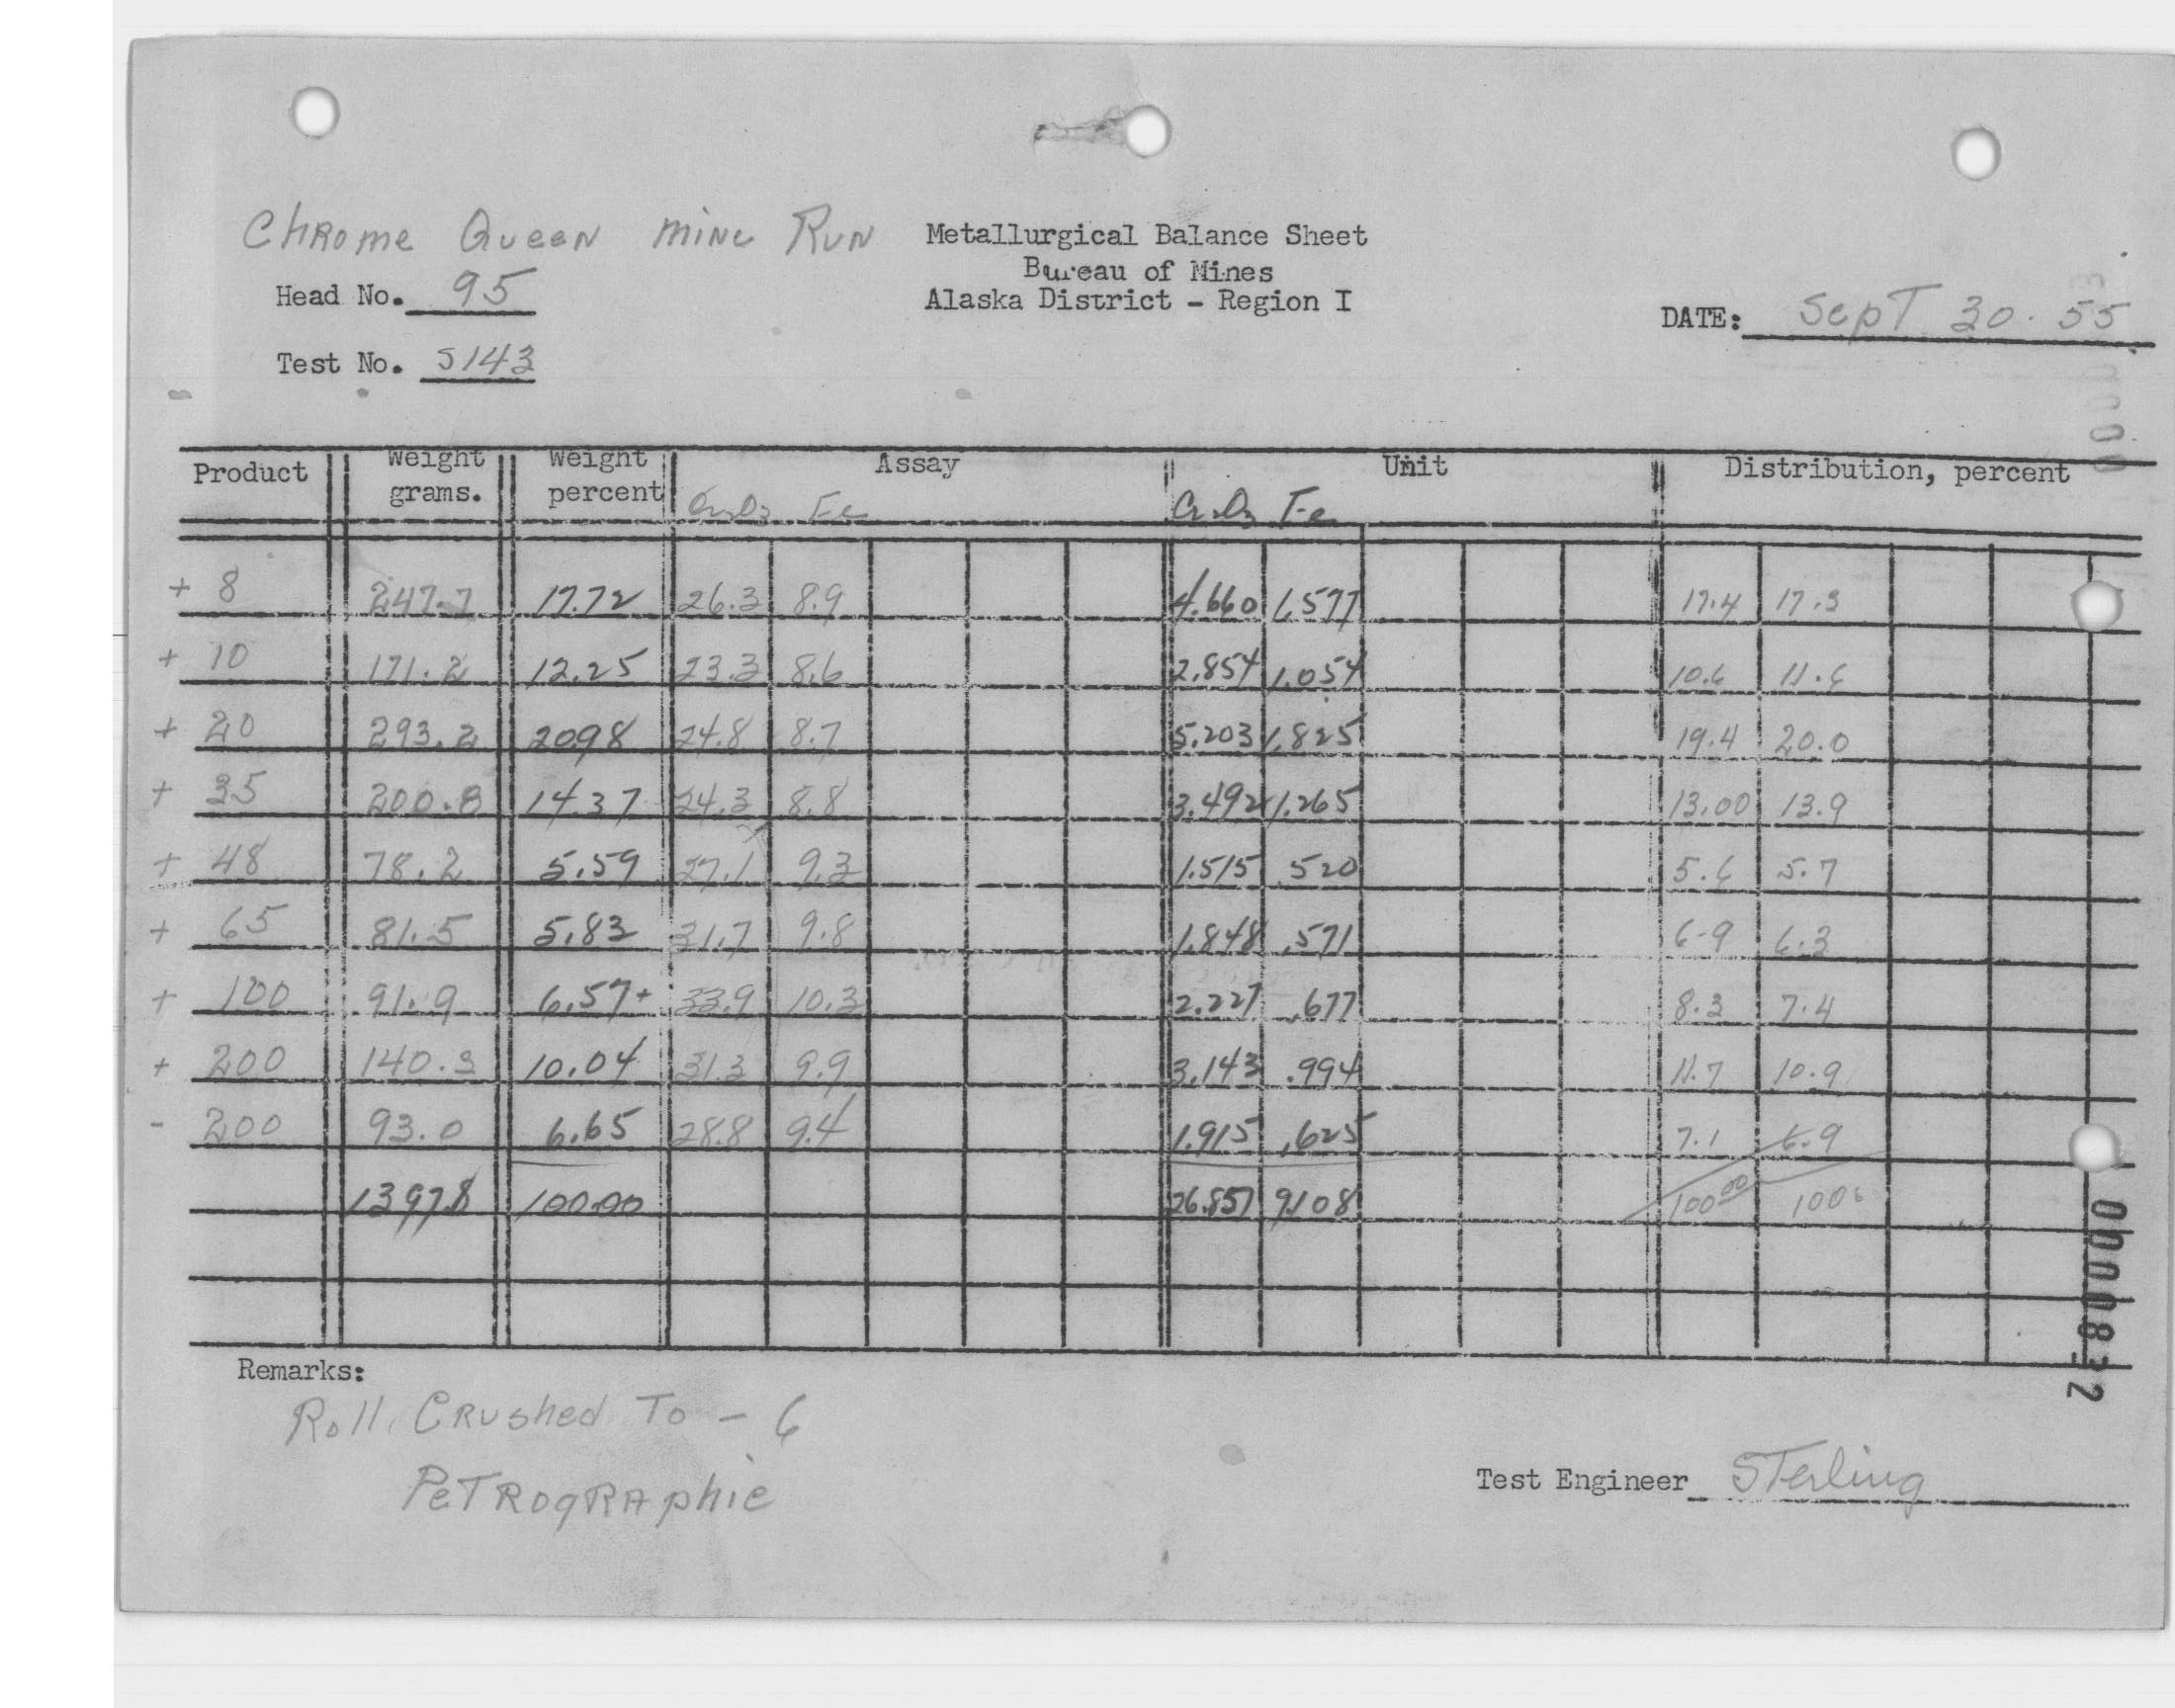 Chrome Queen mine Run
Metallurgical Balance Sheet
Bureau of Mines
Alaska District - Region I
Head No. 95
Test No. S143
DATE: Sept 30. 55
Product Weight grams. Weight percent Assay Unit Distribution, percent
Cr2O3 Fe Cr2O3 Fe
+ 8 247.7 17.72 26.3 8.9 4.660 1.577 17.4 17.3
+ 10 171.2 12.25 23.3 8.6 2.854 1.054 10.6 11.6
+ 20 293.2 2098 24.8 8.7 5.203 1.825 19.4 20.0
+ 35 200.8 14.37 24.3 8.8 3.492 1.265 13.00 13.9
+ 48 78.2 5.59 27.1 9.3 1.515 520 5.6 5.7
+ 65 81.5 5.83 31.7 9.8 1.848 .571 6.9 6.3
+ 100 91.9 6.57+ 33.9 10.3 2.227 .677 8.3 7.4
+ 200 140.3 10.04 31.3 9.9 3.143 .994 11.7 10.9
- 200 93.0 6.65 28.8 9.4 1.915 .625 7.1 6.9
1397.8 100.00 26.857 9.108 100.00 100.
Remarks:
Roll Crushed To - 6
Petrographic
Test Engineer Sterling
0000832